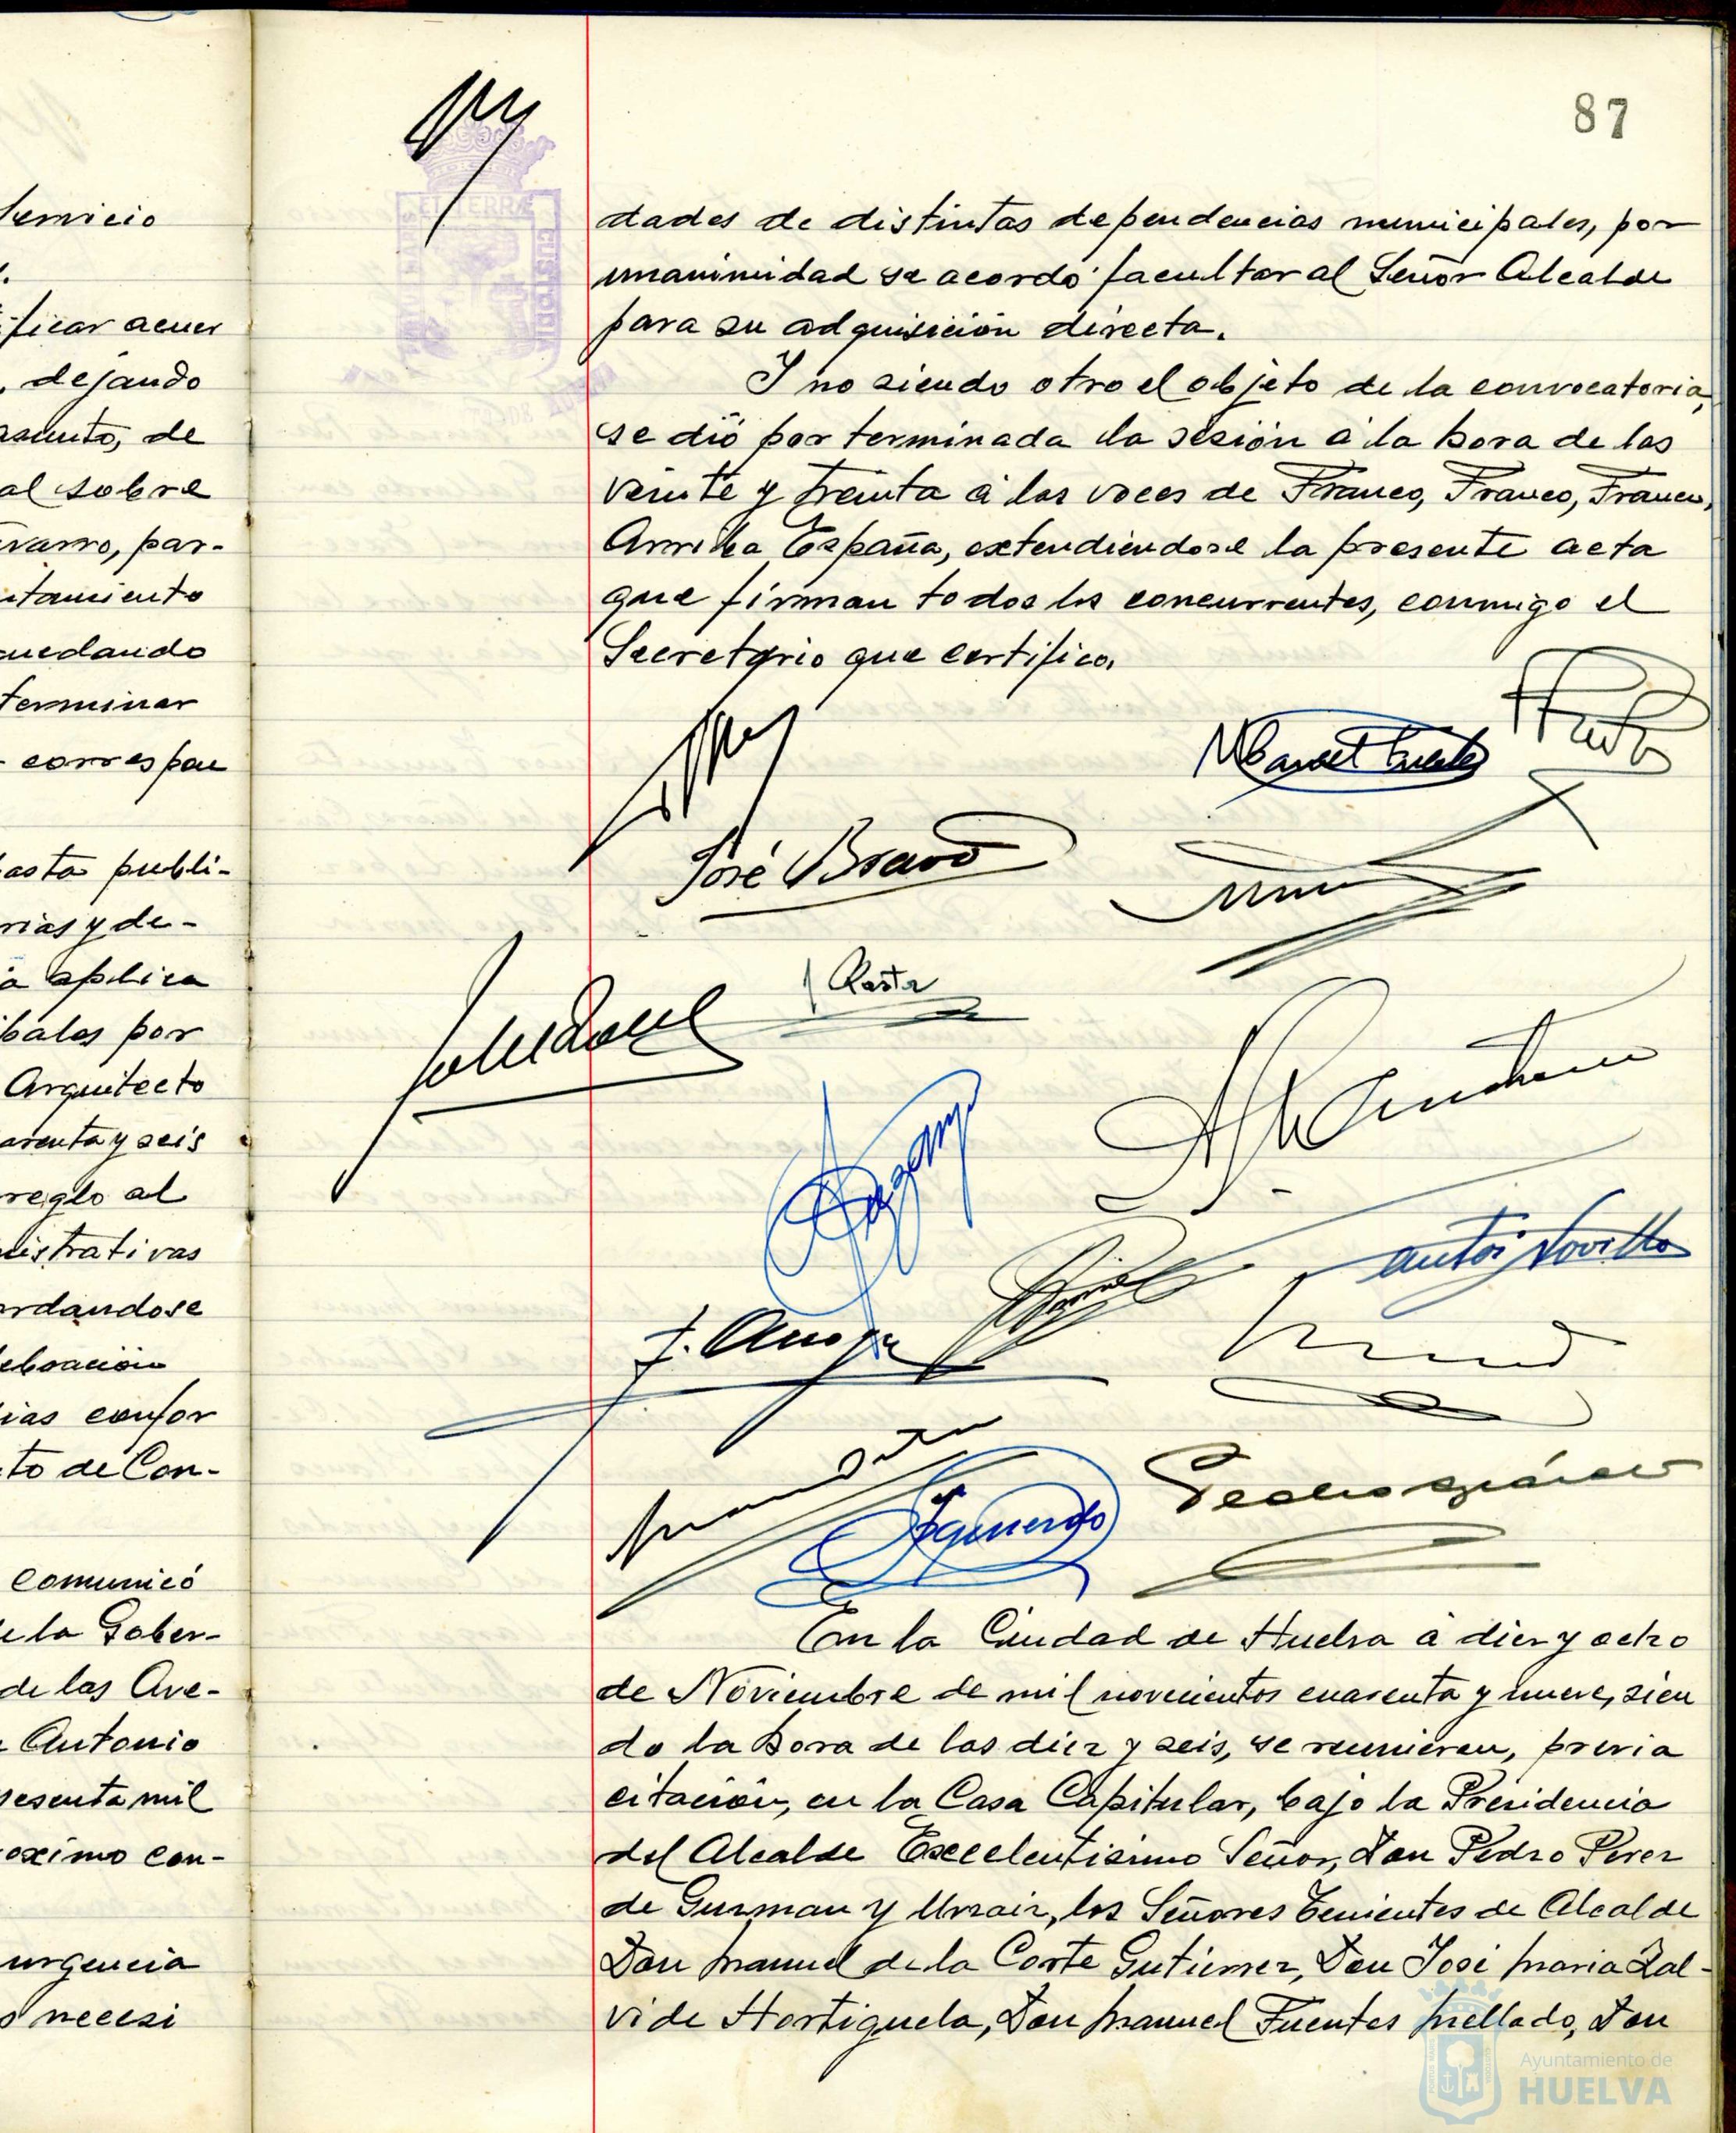 Servicio
ficar acuer
, dejando
asunto, de
al sobre
varro, par-
ntamiento
quedando
terminar
correspon
asta publi-
rias y de-
a aplica
pales por
Arquitecto
arenta y seis
reglo al
nistrativas
ordandose
lebración
ias confor
to de Con-
comunicó
de la Gober-
de las Ave-
Antonio
sesenta mil
oximo con-
urgencia
necesi
87
dades de distintas dependencias municipales, por
unanimidad se acordó facultar al Señor Alcalde
para su adquisición directa.
Y no siendo otro el objeto de la convocatoria,
se dió por terminada la sesión a la hora de las
veinte y treinta a las voces de Franco, Franco, Franco,
Arriba España, extendiendose la presente acta
que firman todos los concurrentes, conmigo el
Secretario que certifico.
Manuel Fuentes
José Bravo
En la Ciudad de Huelva a diez y ocho
de Noviembre de mil novecientos cuarenta y nueve, sien
do la hora de las diez y seis, se reunieron, previa
citación, en la Casa Capitular, bajo la Presidencia
del Alcalde Excelentisimo Señor, Don Pedro Perez
de Guzman y Urzaiz, los Señores Tenientes de Alcalde
Don Manuel de la Corte Gutierrez, Don José Maria Zal-
vide Hortiguela, Don Manuel Fuentes Mellado, Don
Ayuntamiento de
HUELVA